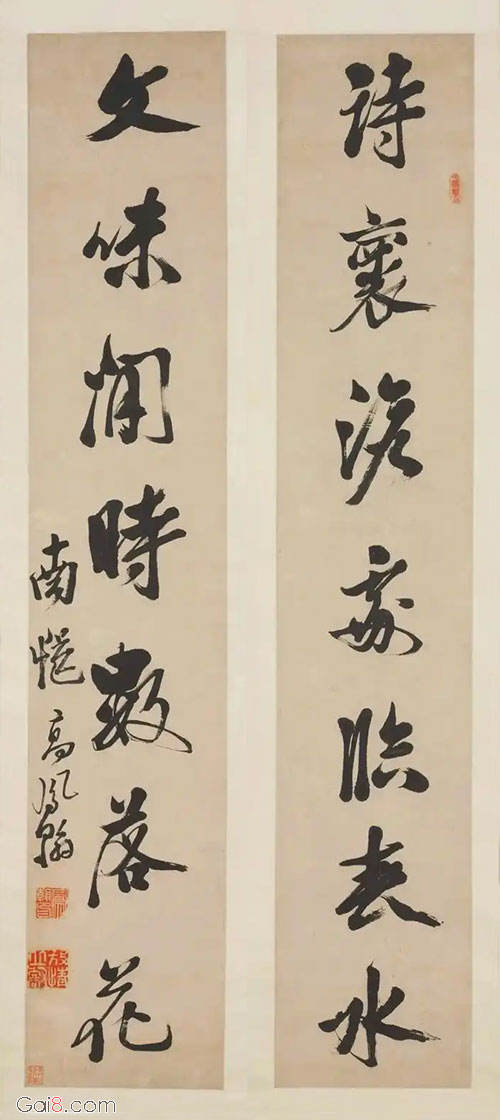 詩褱澹處臨春水
文味閒時數落花
南高鳳翰
Gai8.com